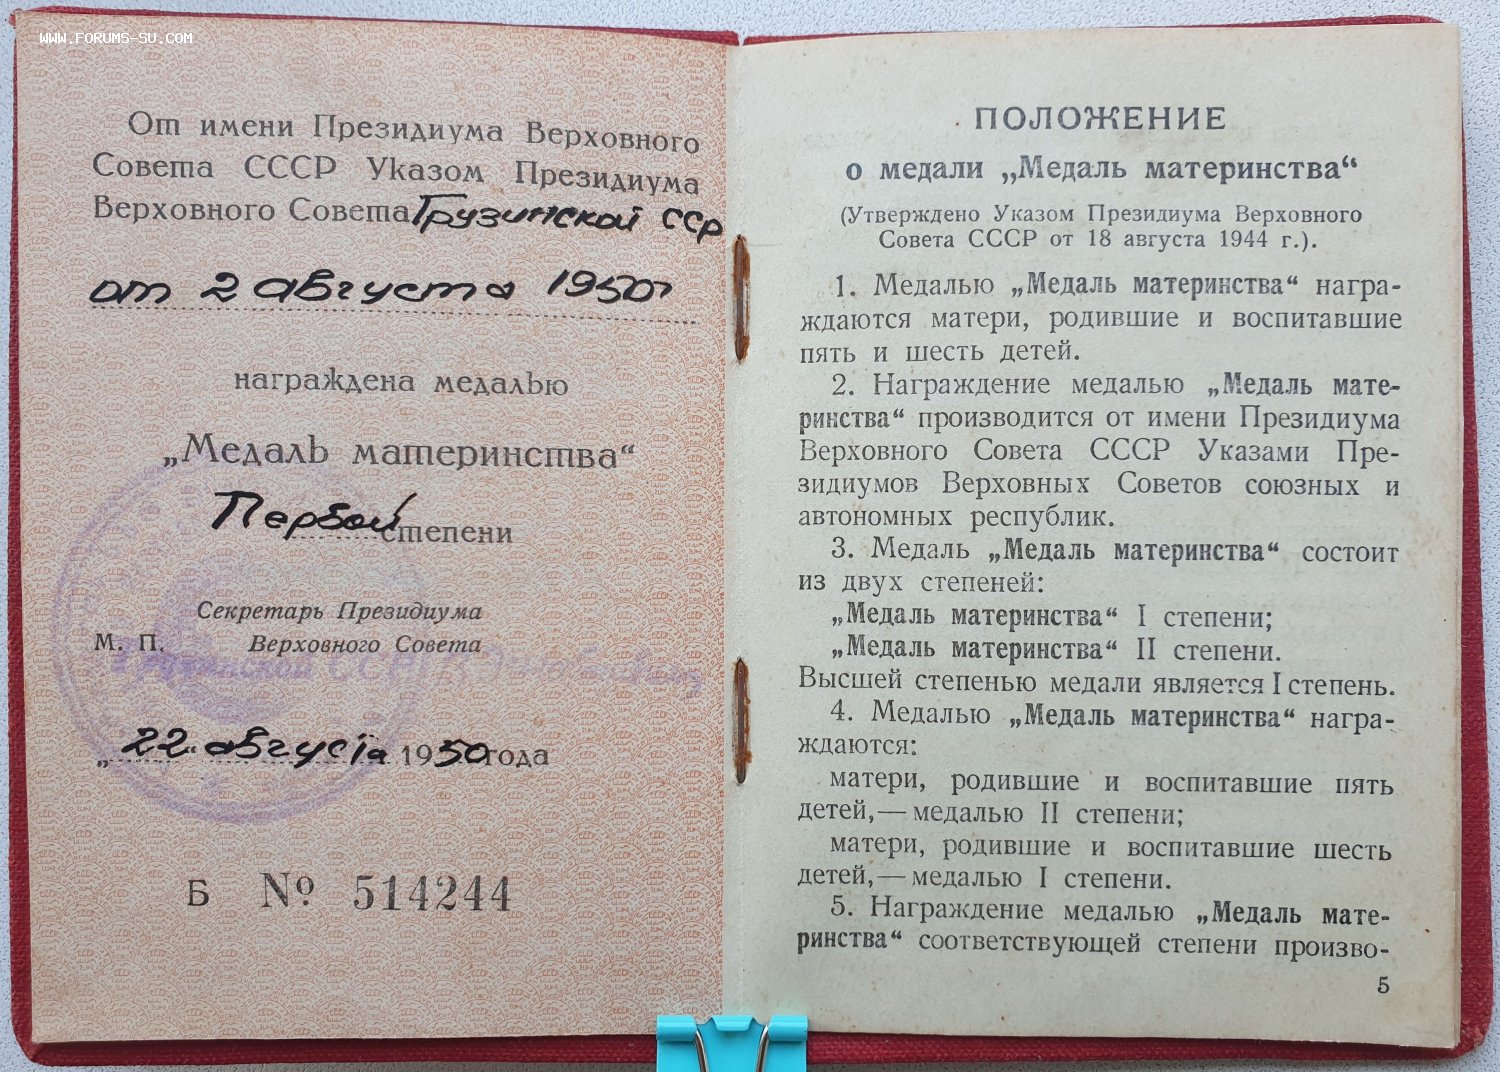 WWW.FORUMS-SU.COM
От имени Президиума Верховного
Совета СССР Указом Президиума
Верховного Совета Грузинской ССР
от 2 августа 1950г
награждена медалью
„Медаль материнства“
Первой степени
Секретарь Президиума
М. П. Верховного Совета
Грузинской ССР
„22“ августа 1950 года
Б № 514244
ПОЛОЖЕНИЕ
о медали „Медаль материнства“
(Утверждено Указом Президиума Верховного
Совета СССР от 18 августа 1944 г.).
1. Медалью „Медаль материнства“ награ-
ждаются матери, родившие и воспитавшие
пять и шесть детей.
2. Награждение медалью „Медаль мате-
ринства“ производится от имени Президиума
Верховного Совета СССР Указами Пре-
зидиумов Верховных Советов союзных и
автономных республик.
3. Медаль „Медаль материнства“ состоит
из двух степеней:
„Медаль материнства“ I степени;
„Медаль материнства“ II степени.
Высшей степенью медали является I степень.
4. Медалью „Медаль материнства“ награ-
ждаются:
матери, родившие и воспитавшие пять
детей,— медалью II степени;
матери, родившие и воспитавшие шесть
детей,— медалью I степени.
5. Награждение медалью „Медаль мате-
ринства“ соответствующей степени произво-
5